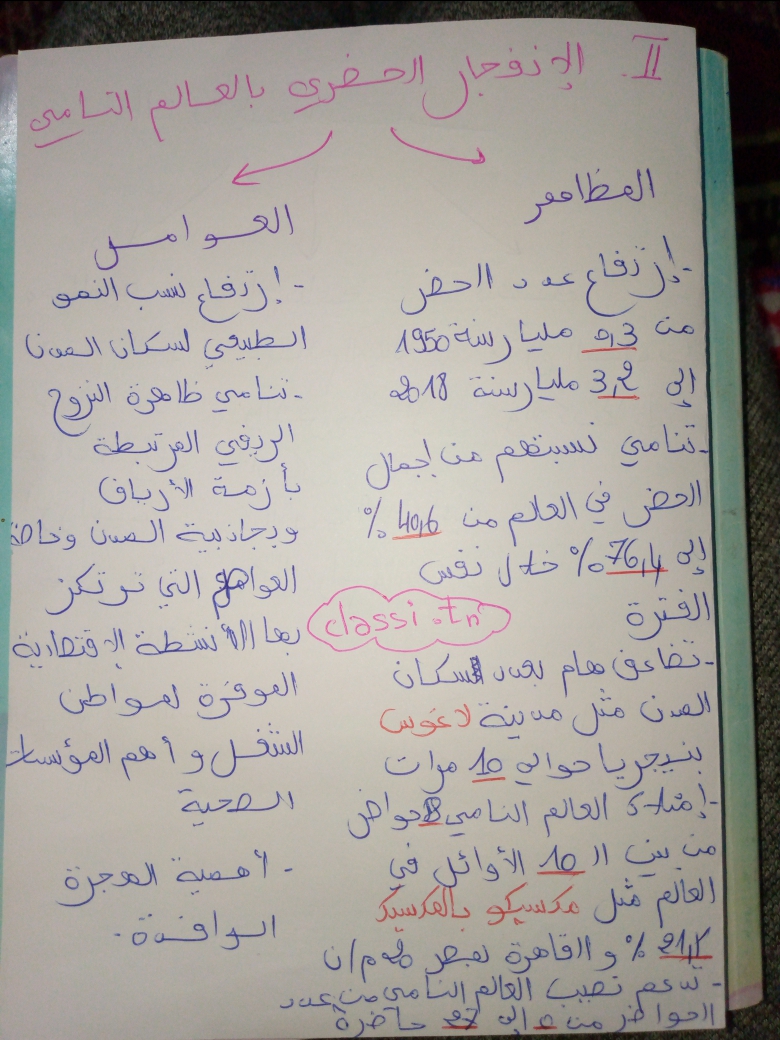 II. الإنفجار الحضري بالعالم النامي
المظاهر
- إرتفاع عدد الحضر
من 0,3 مليار سنة 1950
إلى 3,2 مليار سنة 2018
- تنامي نسبتهم من إجمالي
الحضر في العالم من 40,6 %
إلى 76,4 % خلال نفس
الفترة
- تضاعف هام بعدد سكان
المدن مثل مدينة لاغوس
بنيجريا حوالي 10 مرات
- إمتلاك العالم النامي 8 حواضر
من بين الـ 10 الأوائل في
العالم مثل مكسيكو بالمكسيك
% و القاهرة بمصر 20 م/ن
- تدعم نصيب العالم النامي من عدد
الحواضر من إلى 27 حاضرة
العوامل
- إرتفاع نسب النمو
الطبيعي لسكان المدن
- تنامي ظاهرة النزوح
الريفي المرتبطة
بأزمة الأرياف
وبجاذبية المدن وخاصة
العواصم التي تتركز
بها الأنشطة الإقتصادية
الموفرة لمواطن
الشغل و أهم المؤسسات
الصحية
- أهمية الهجرة
الوافدة.
classi.tn